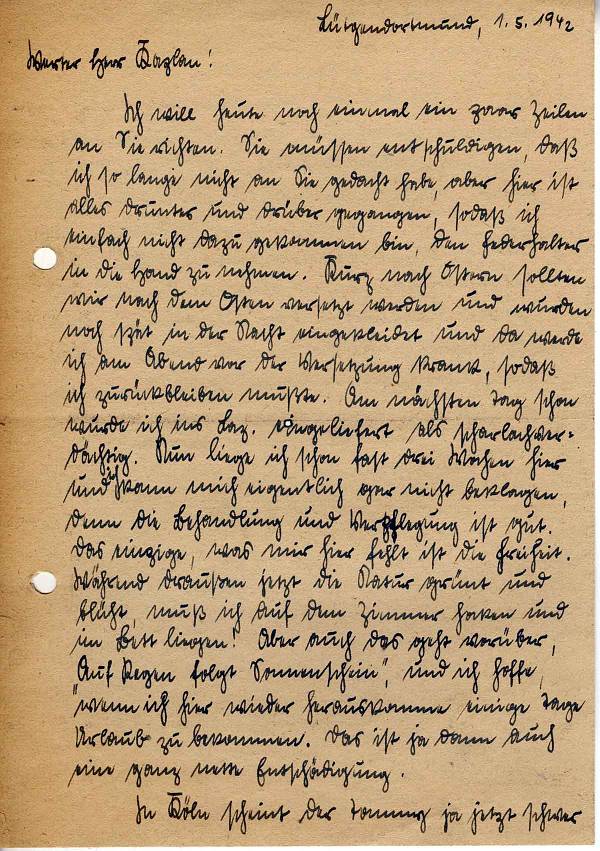 Lütgendortmund, 1.5.1942
Werter Herr Kaplan!
Ich will heute noch einmal ein paar Zeilen
an Sie richten. Sie müssen entschuldigen, daß
ich so lange nicht an Sie gedacht habe, aber hier ist
alles drunter und drüber gegangen, sodaß ich
einfach nicht dazu gekommen bin, den Federhalter
in die Hand zu nehmen. Kurz nach Ostern sollten
wir nach dem Osten versetzt werden und wurden
noch spät in der Nacht eingekleidet und da werde
ich am Abend vor der Versetzung krank, sodaß
ich zurückbleiben mußte. Am nächsten Tag schon
wurde ich ins Laz. eingeliefert als scharlachver-
dächtig. Nun liege ich schon fast drei Wochen hier
und ich kann mich eigentlich gar nicht beklagen,
denn die Behandlung und Verpflegung ist gut.
Das einzige, was mir hier fehlt ist die Freiheit.
Während draußen jetzt die Natur grünt und
blüht, muß ich auf dem Zimmer hocken und
im Bett liegen! Aber auch das geht vorüber,
"Auf Regen folgt Sonnenschein", und ich hoffe,
wenn ich hier wieder herauskomme einige Tage
Urlaub zu bekommen. Das ist ja dann auch
eine ganz nette Entschädigung.
In Köln scheint der Tommy ja jetzt schwer